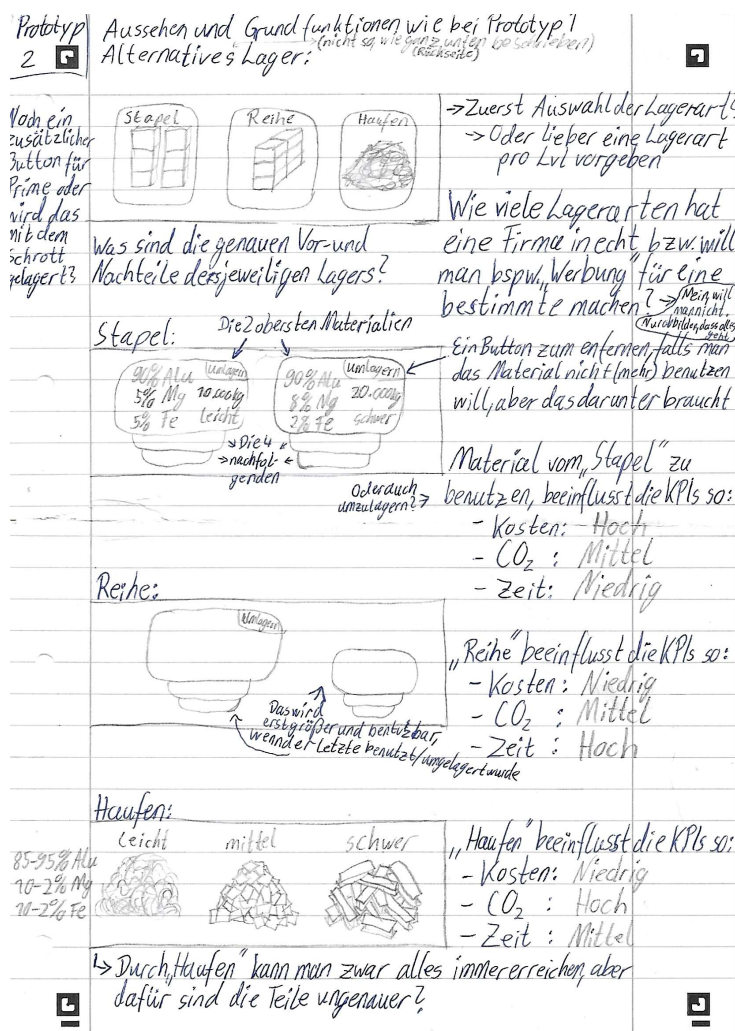 Prototyp 2
Aussehen und Grundfunktionen wie bei Prototyp 1
(nicht so, wie ganz unten beschrieben)
(Rückseite)
Alternatives Lager:
Stapel
Reihe
Haufen
→ Zuerst Auswahl der Lagerart?
→ Oder lieber eine Lagerart
pro Lvl vorgeben
Noch ein
zusätzlicher
Button für
Prime oder
wird das
mit dem
Schrott
gelagert?
Was sind die genauen Vor- und
Nachteile des jeweiligen Lagers?
Wie viele Lagerarten hat
eine Firma in echt bzw. will
man bspw. "Werbung" für eine
bestimmte machen?
→ Nein, will
man nicht.
Nur abbilden, dass alles
geht
Stapel:
Die 2 obersten Materialien
Umlagern
90% Alu
5% Mg 10.000kg
5% Fe leicht
Umlagern
90% Alu
8% Mg 20.000kg
2% Fe schwer
Die 4
nachfol-
genden
Ein Button zum enfernen, falls man
das Material nicht (mehr) benutzen
will, aber das darunter braucht
Oder auch
umzulagern? →
Material vom "Stapel" zu
benutzen, beeinflusst die KPIs so:
- Kosten: Hoch
- CO2 : Mittel
- Zeit: Niedrig
Reihe:
Umlagern
Das wird
erst größer und bentuzbar,
wenn der Letzte benutzt/umgelagert wurde
"Reihe" beeinflusst die KPIs so:
- Kosten: Niedrig
- CO2 : Mittel
- Zeit : Hoch
Haufen:
leicht mittel schwer
85-95% Alu
10-2% Mg
10-2% Fe
"Haufen" beeinflusst die KPIs so:
- Kosten: Niedrig
- CO2 : Hoch
- Zeit : Mittel
↳ Durch "Haufen" kann man zwar alles immer erreichen, aber
dafür sind die Teile ungenauer?